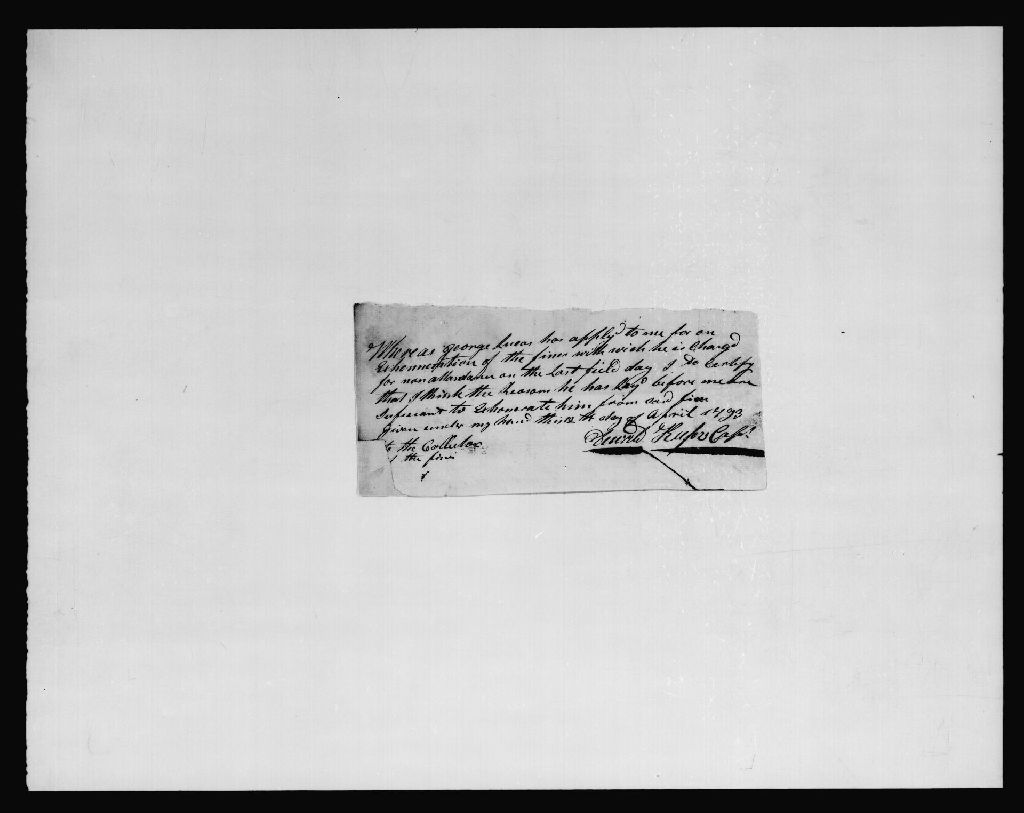 Whereas george Lucas has apply'd to me for an
Exhonneration of the fines with wich he is Charg'd
for nonattendance on the last field day I do Certify
that I think the Reasons he has lay'd before me are
Suficiant to Exhonerate him from said fine
Given under my hand this 12 th day of April 1793
to the Collector
of the fines
Capt